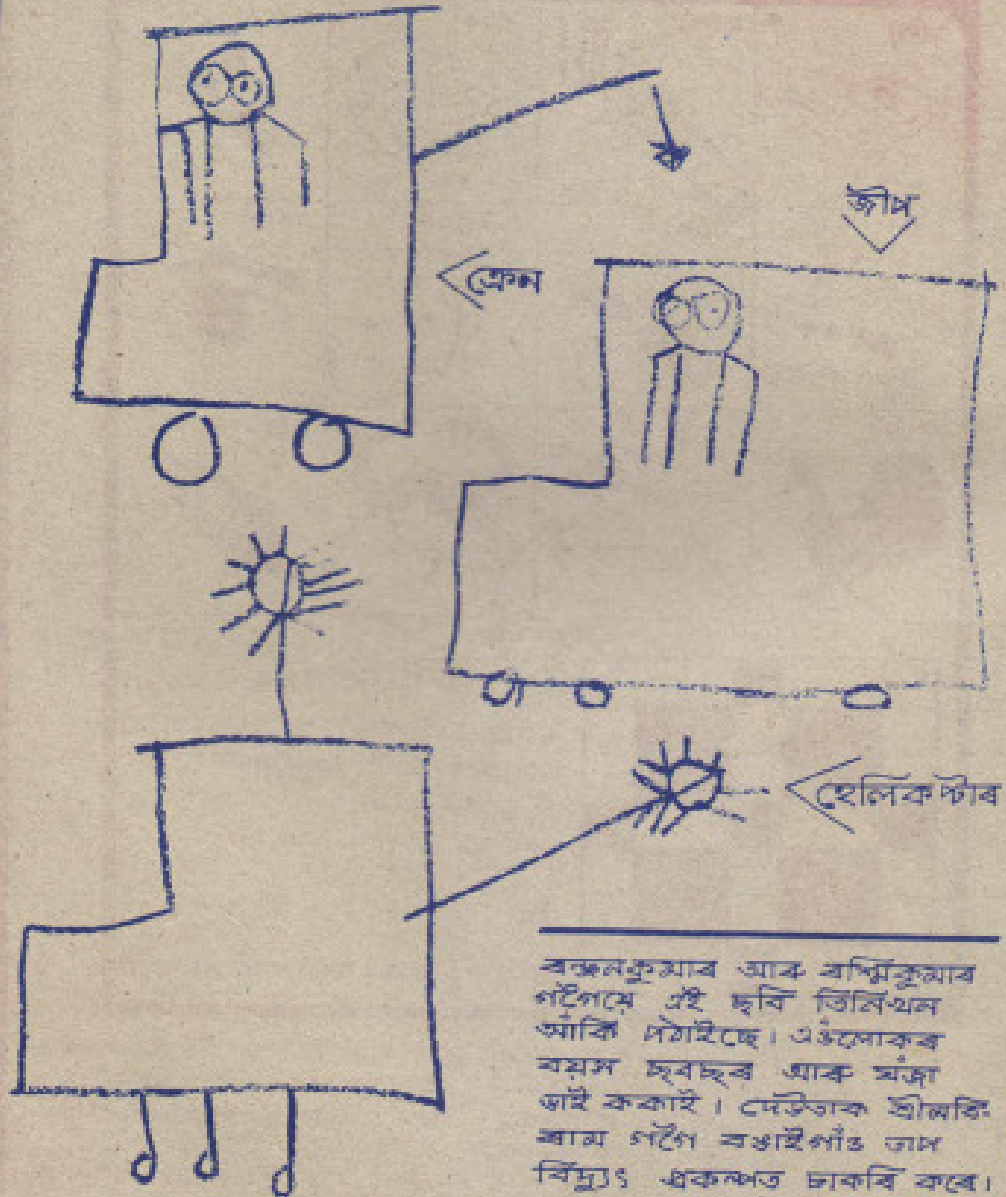 ক্ৰেন
জীপ
হেলিকপ্টাৰ
ৰঞ্জনকুমাৰ আৰু ৰশ্মিকুমাৰ
গগৈয়ে এই ছবি তিনিখন
আঁকি পঠাইছে। এওঁলোকৰ
বয়স ছবছৰ আৰু যঁজা
ভাই ককাই। দেউতাক শ্ৰীমৰি-
ৰাম গগৈ বঙাইগাঁও তাপ
বিদ্যুৎ প্ৰকল্পত চাকৰি কৰে।